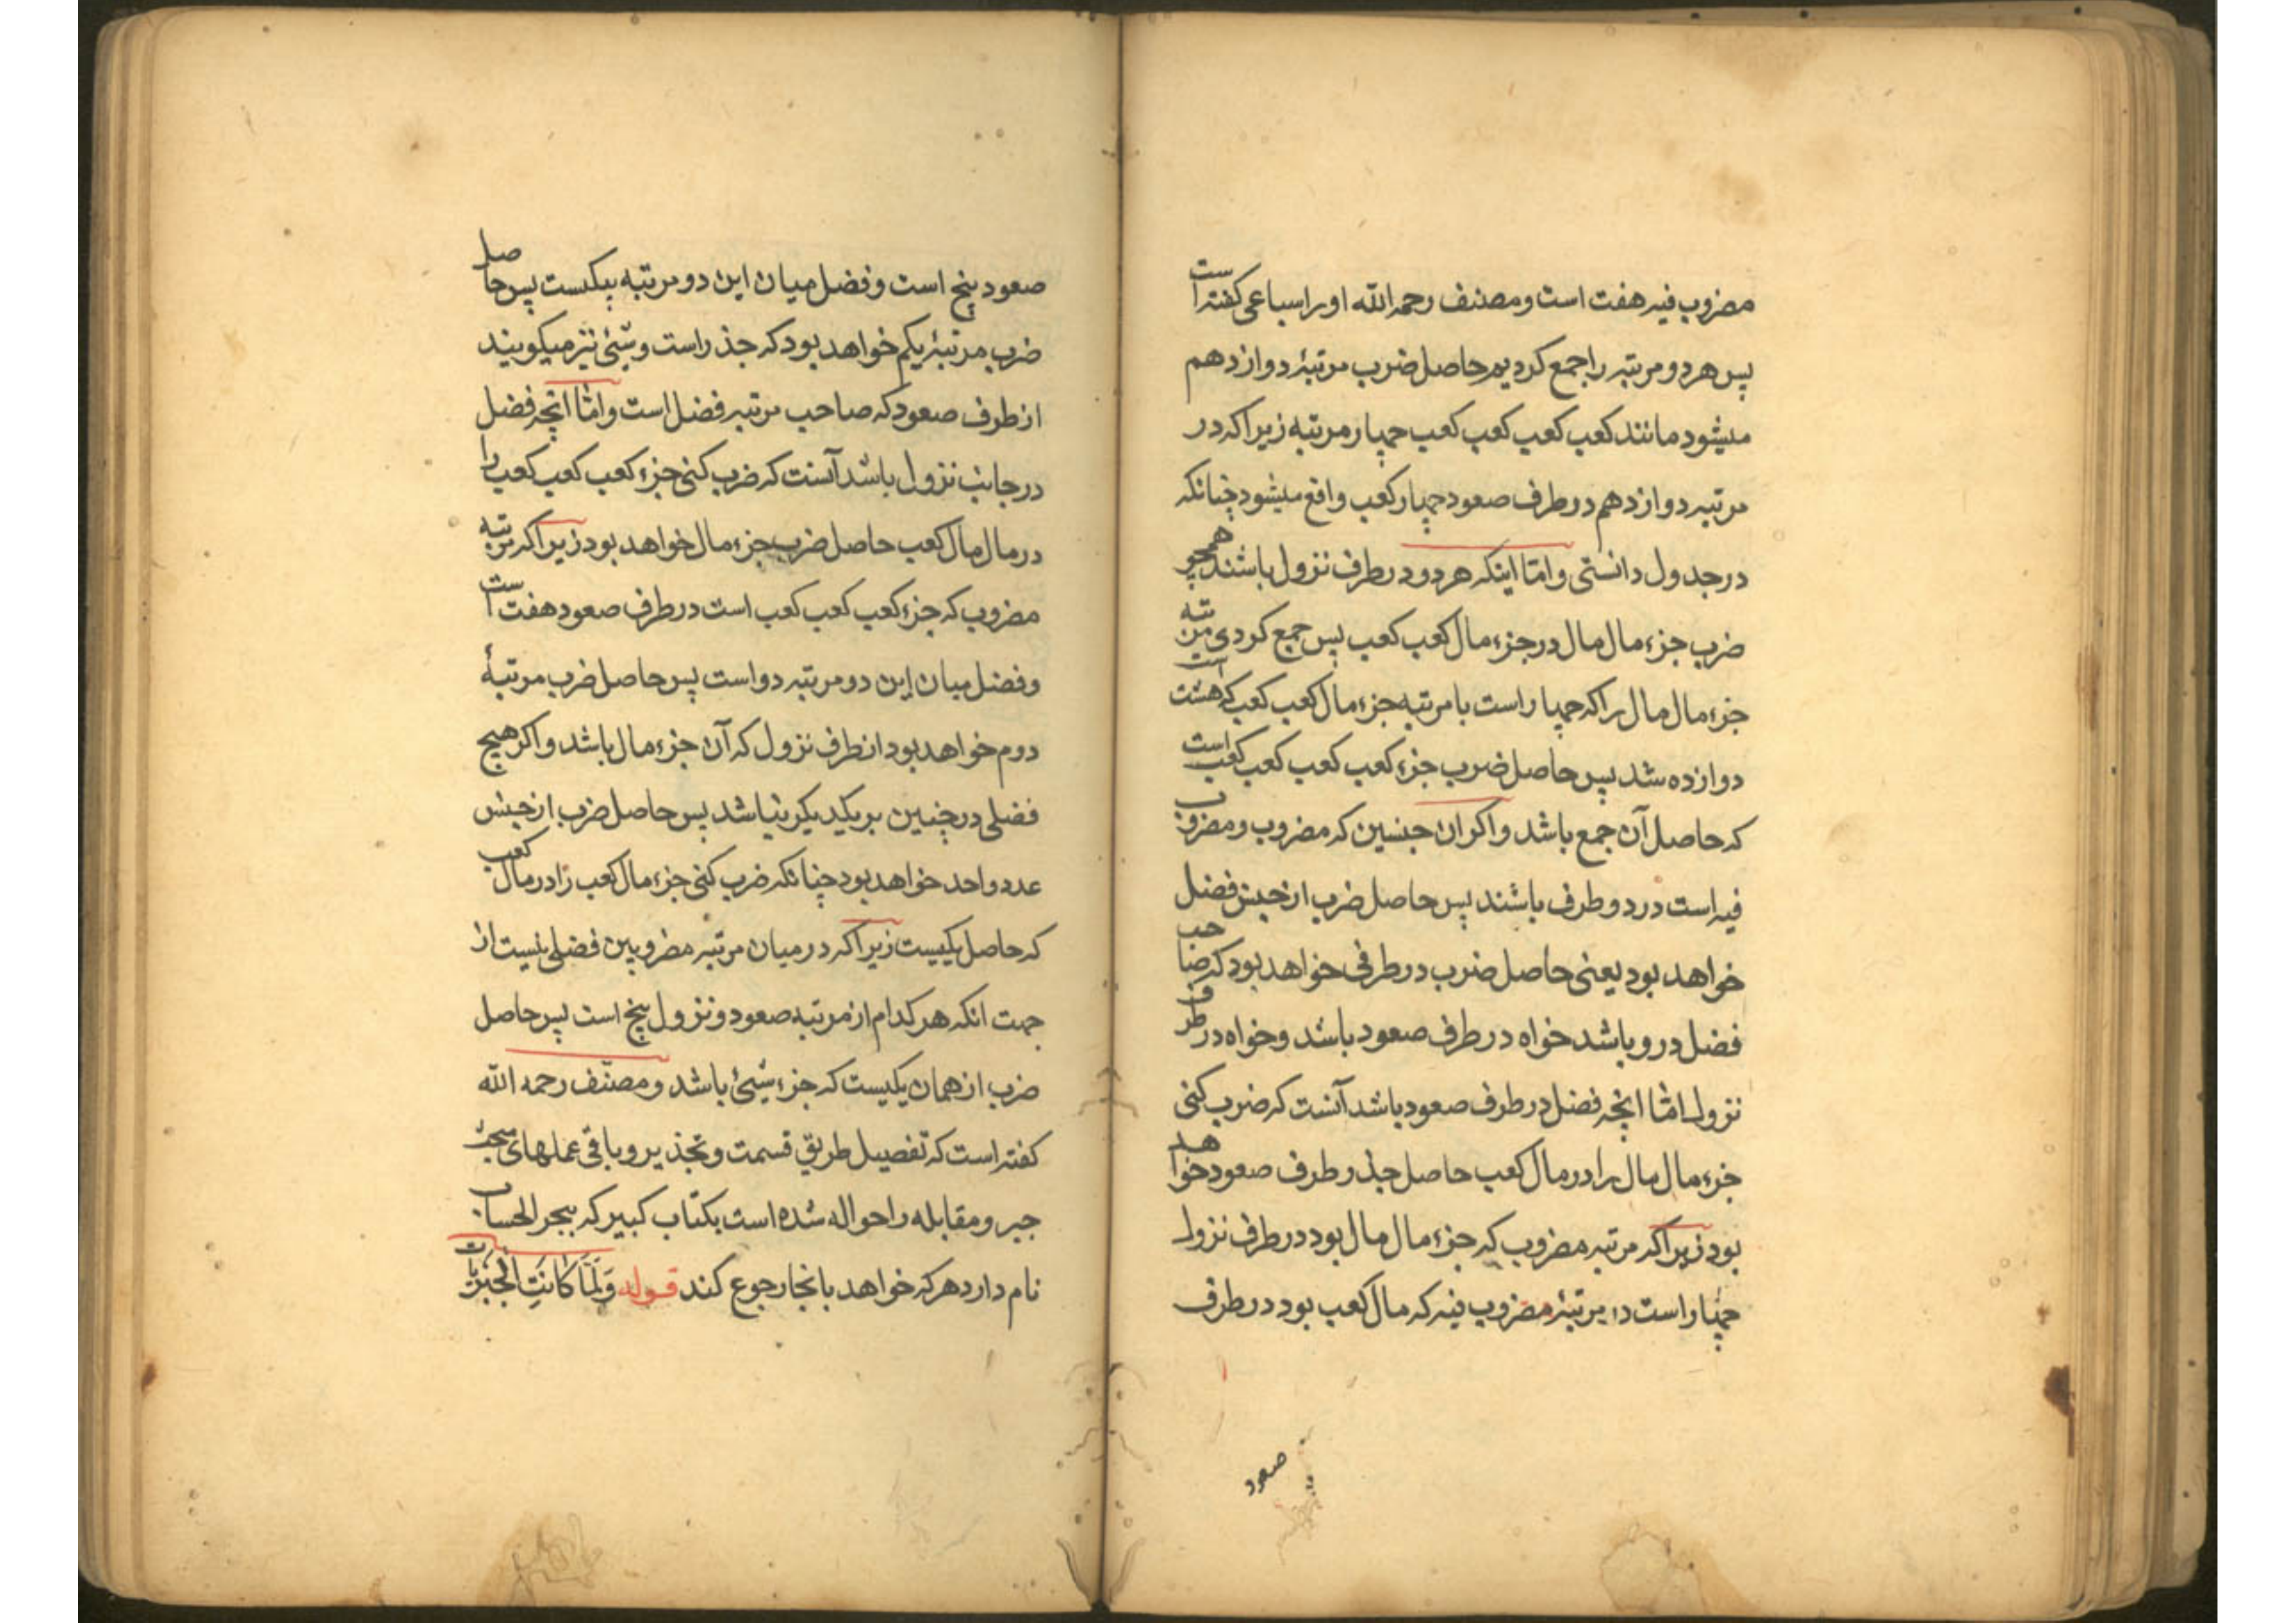 مضروب فیه هفت است و مصنف رحمه الله او را سباعی کفته است
پس هر دو مرتبه را جمع کردیم حاصل ضرب مرتبهٔ دوازدهم
میشود مانند کعب کعب کعب کعب چهار مرتبه زیرا که در
مرتبه دوازدهم در طرف صعود چهار کعب واقع میشود چنانکه
در جدول دانستی و امّا اینکه هر دو در طرف نزول باشند همچو
ضرب جزء مال مال در جزء مال کعب کعب پس جمع کردی مرتبه
جزء مال مال را که چهار است با مرتبه جزء مال کعب کعب که هشت است
دوازده شد پس حاصل ضرب جزء کعب کعب کعب کعب است
که حاصل آن جمع باشد و اکر ان جنسین که مضروب و مضروب
فیه است در دو طرف باشند پس حاصل ضرب از جنس فضل
خواهد بود یعنی حاصل ضرب در طرفی خواهد بود که صاحب
فضل درو باشد خواه در طرف صعود باشد و خواه در طرف
نزول امّا انچه فضل در طرف صعود باشد آنست که ضرب کنی
جزء مال مال را در مال کعب حاصل جذر طرف صعود خواهد
بود زیرا که مرتبه مضروب که جزء مال مال بود در طرف نزول
چهار است و مرتبهٔ مضروب فیه که مال کعب بود در طرف
صعود
صعود پنج است و فضل میان این دو مرتبه بیکست پس حاصل
ضرب مرتبهٔ یکم خواهد بود که جذر است و شیئ نیز میکویند
از طرف صعود که صاحب مرتبه فضل است و امّا انچه فضل
در جانب نزول باشد آنست که ضرب کنی جزء کعب کعب کعب را
در مال مال کعب حاصل ضرب جزء مال خواهد بود زیرا که مرتبه
مضروب که جزء کعب کعب کعب است در طرف صعود هفت است
و فضل میان این دو مرتبه دو است پس حاصل ضرب مرتبهٔ
دوم خواهد بود از طرف نزول که آن جزء مال باشد و اکر هیچ
فضلی در جنسین بر یکدیکر نباشد پس حاصل ضرب از جنس
عدد واحد خواهد بود چنانکه ضرب کنی جزء مال کعب را در مال کعب
که حاصل یکیست زیرا که در میان مرتبه مضروبین فضلی نیست از
جهت انکه هر کدام از مرتبه صعود و نزول پنج است پس حاصل
ضرب از همان یکیست که جزء شیئ باشد و مصنّف رحمه الله
کفته است که تفصیل طریق قسمت و تجذیر و باقی عملهای مبحث
جبر و مقابله را حواله شده است بکتاب کبیر که ببحر الحساب
نام دارد هر که خواهد بانجا رجوع کند قوله وَلَمَّا کَانَتِ الْجَبْرِیَّات